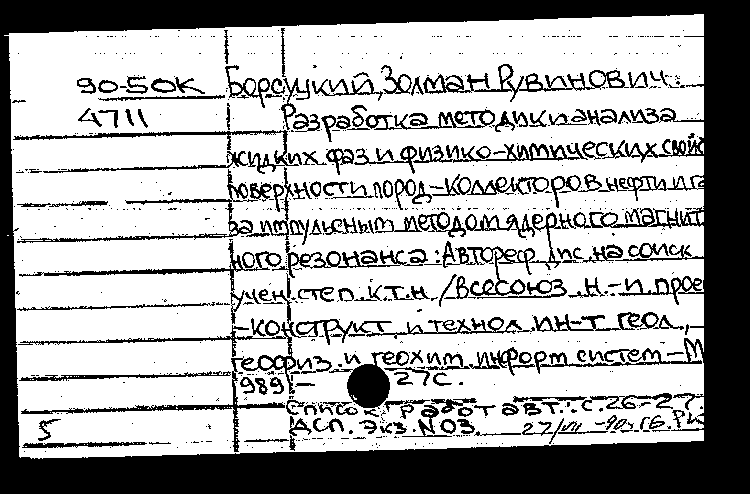 90-50К Борсуцкий, Золман Рувинович.
4711 Разработка методики анализа
жидких фаз и физико-химических свойс
поверхности пород-коллекторов нефти и га
за импульсным методом ядерного магнит
ного резонанса: Автореф дис. на соиск
учен. степ. к.т.н. /Всесоюз. н.-и. прое
-конструкт. и технол. ин-т геол.,
геофиз. и геохим. информ систем-М
1989.- 27с.
Список работ авт.: с. 26-27
5 ДСП. Экз. N 03. 27/VII-90г. ГБ.